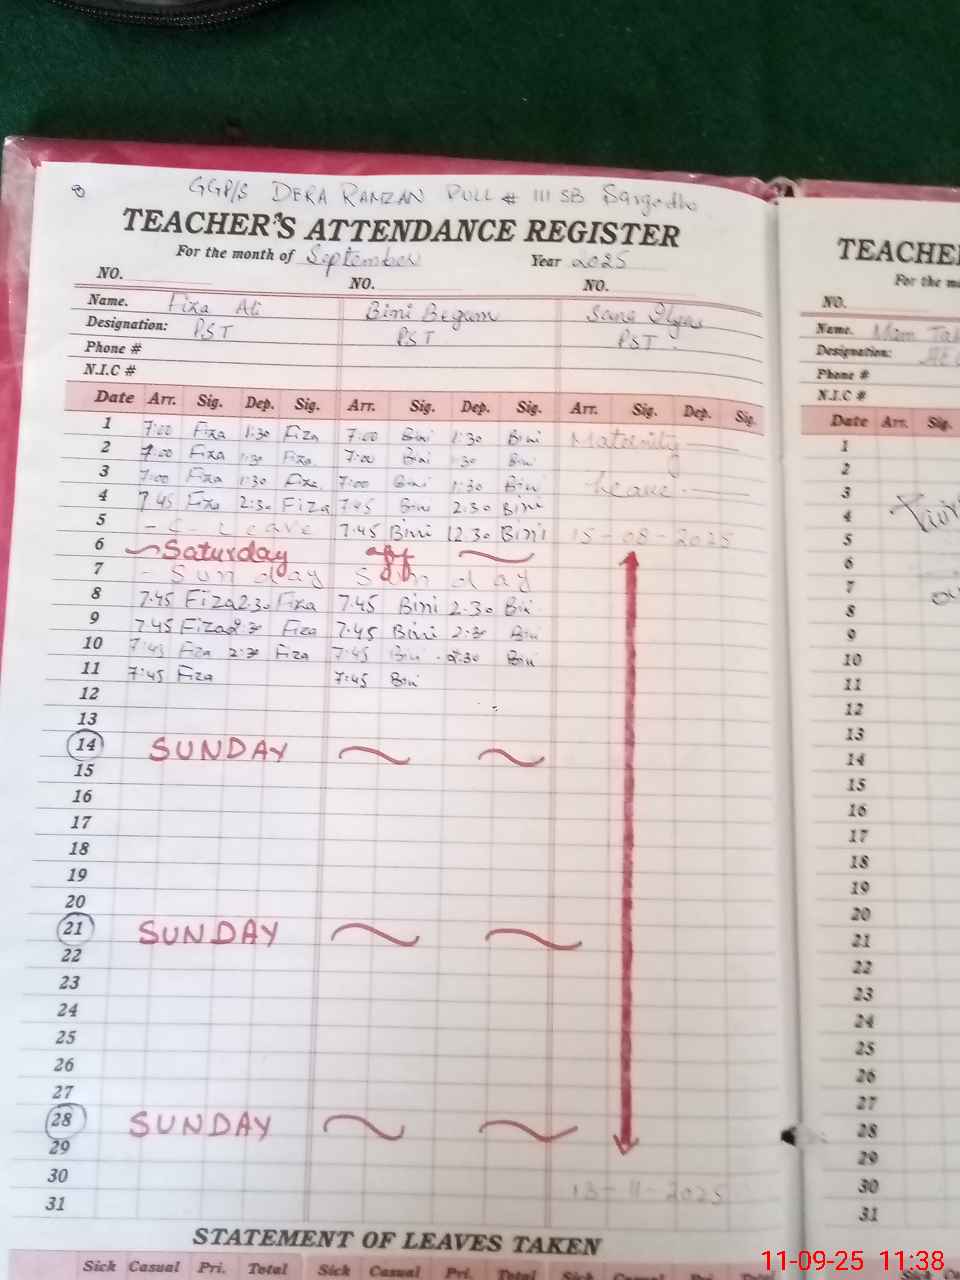 8 GGP/S DERA RAMZAN PULL # 111 SB Sargodha
TEACHER'S ATTENDANCE REGISTER
For the month of September Year 2025
NO. NO. NO.
Name. Fiza Ali Bini Begum Sana
Designation: PST PST PST
Phone #
N.I.C #
Date Arr. Sig. Dep. Sig. Arr. Sig. Dep. Sig. Arr. Sig. Dep. Sig.
1 7:00 Fiza 1:30 Fiza 7:00 Bini 1:30 Bini Maternity
2 7:00 Fiza 1:30 Fiza 7:00 Bini 1:30 Bini
3 7:00 Fiza 1:30 Fiza 7:00 Bini 1:30 Bini Leave
4 7.45 Fiza 2:30 Fiza 7:45 Bini 2.30 Bini
5 - C Leave 7.45 Bini 12.30 Bini 15-08-2025
6 Saturday off
7 - Sunday Sunday
8 7.45 Fiza 2:30 Fiza 7.45 Bini 2.30 Bini
9 7.45 Fiza 2:30 Fiza 7.45 Bini 2:30 Bini
10 7:45 Fiza 2:30 Fiza 7:45 Bini 2:30 Bini
11 7:45 Fiza 7:45 Bini
12
13
14 SUNDAY
15
16
17
18
19
20
21 SUNDAY
22
23
24
25
26
27
28 SUNDAY
29
30 13-11-2025
31
STATEMENT OF LEAVES TAKEN
Sick Casual Pri. Total Sick Casual Pri. Total Sick Casual Pri. Total
TEACHE
For the m
NO.
Name. Mam
Designation:
Phone #
N.I.C #
Date Arr. Sig.
1
2
3
4
5
6
7
8
9
10
11
12
13
14
15
16
17
18
19
20
21
22
23
24
25
26
27
28
29
30
31
11-09-25 11:38